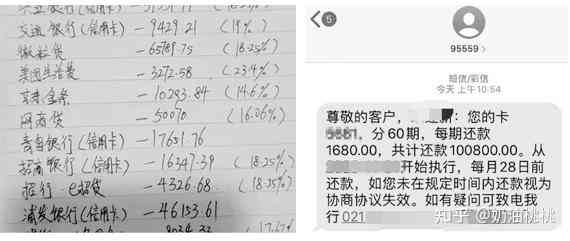 交通银行(信用卡) — 9429.21 (19%)
微粒贷 — 65789.75 (18.25%)
美团生活费 — 3272.58 (23.4%)
京东金条 — 10293.84 (14.6%)
网商贷 — 50070 (16.06%)
青岛银行(信用卡) — 17651.76
招商银行(信用卡) — 16347.39 (18.25%)
招行 e招贷 — 4326.68 (18.25%)
浦发银行(信用卡) — 46153.61
5
95559 >
短信/彩信
今天 上午 10:54
尊敬的客户，您的卡
分60期，每期还款
1680.00，共计还款100800.00。从
开始执行，每月28日前
还款，如您未在规定时间内还款视为
协商协议失效。如有疑问可致电我
行021
知乎 @奶油桃桃